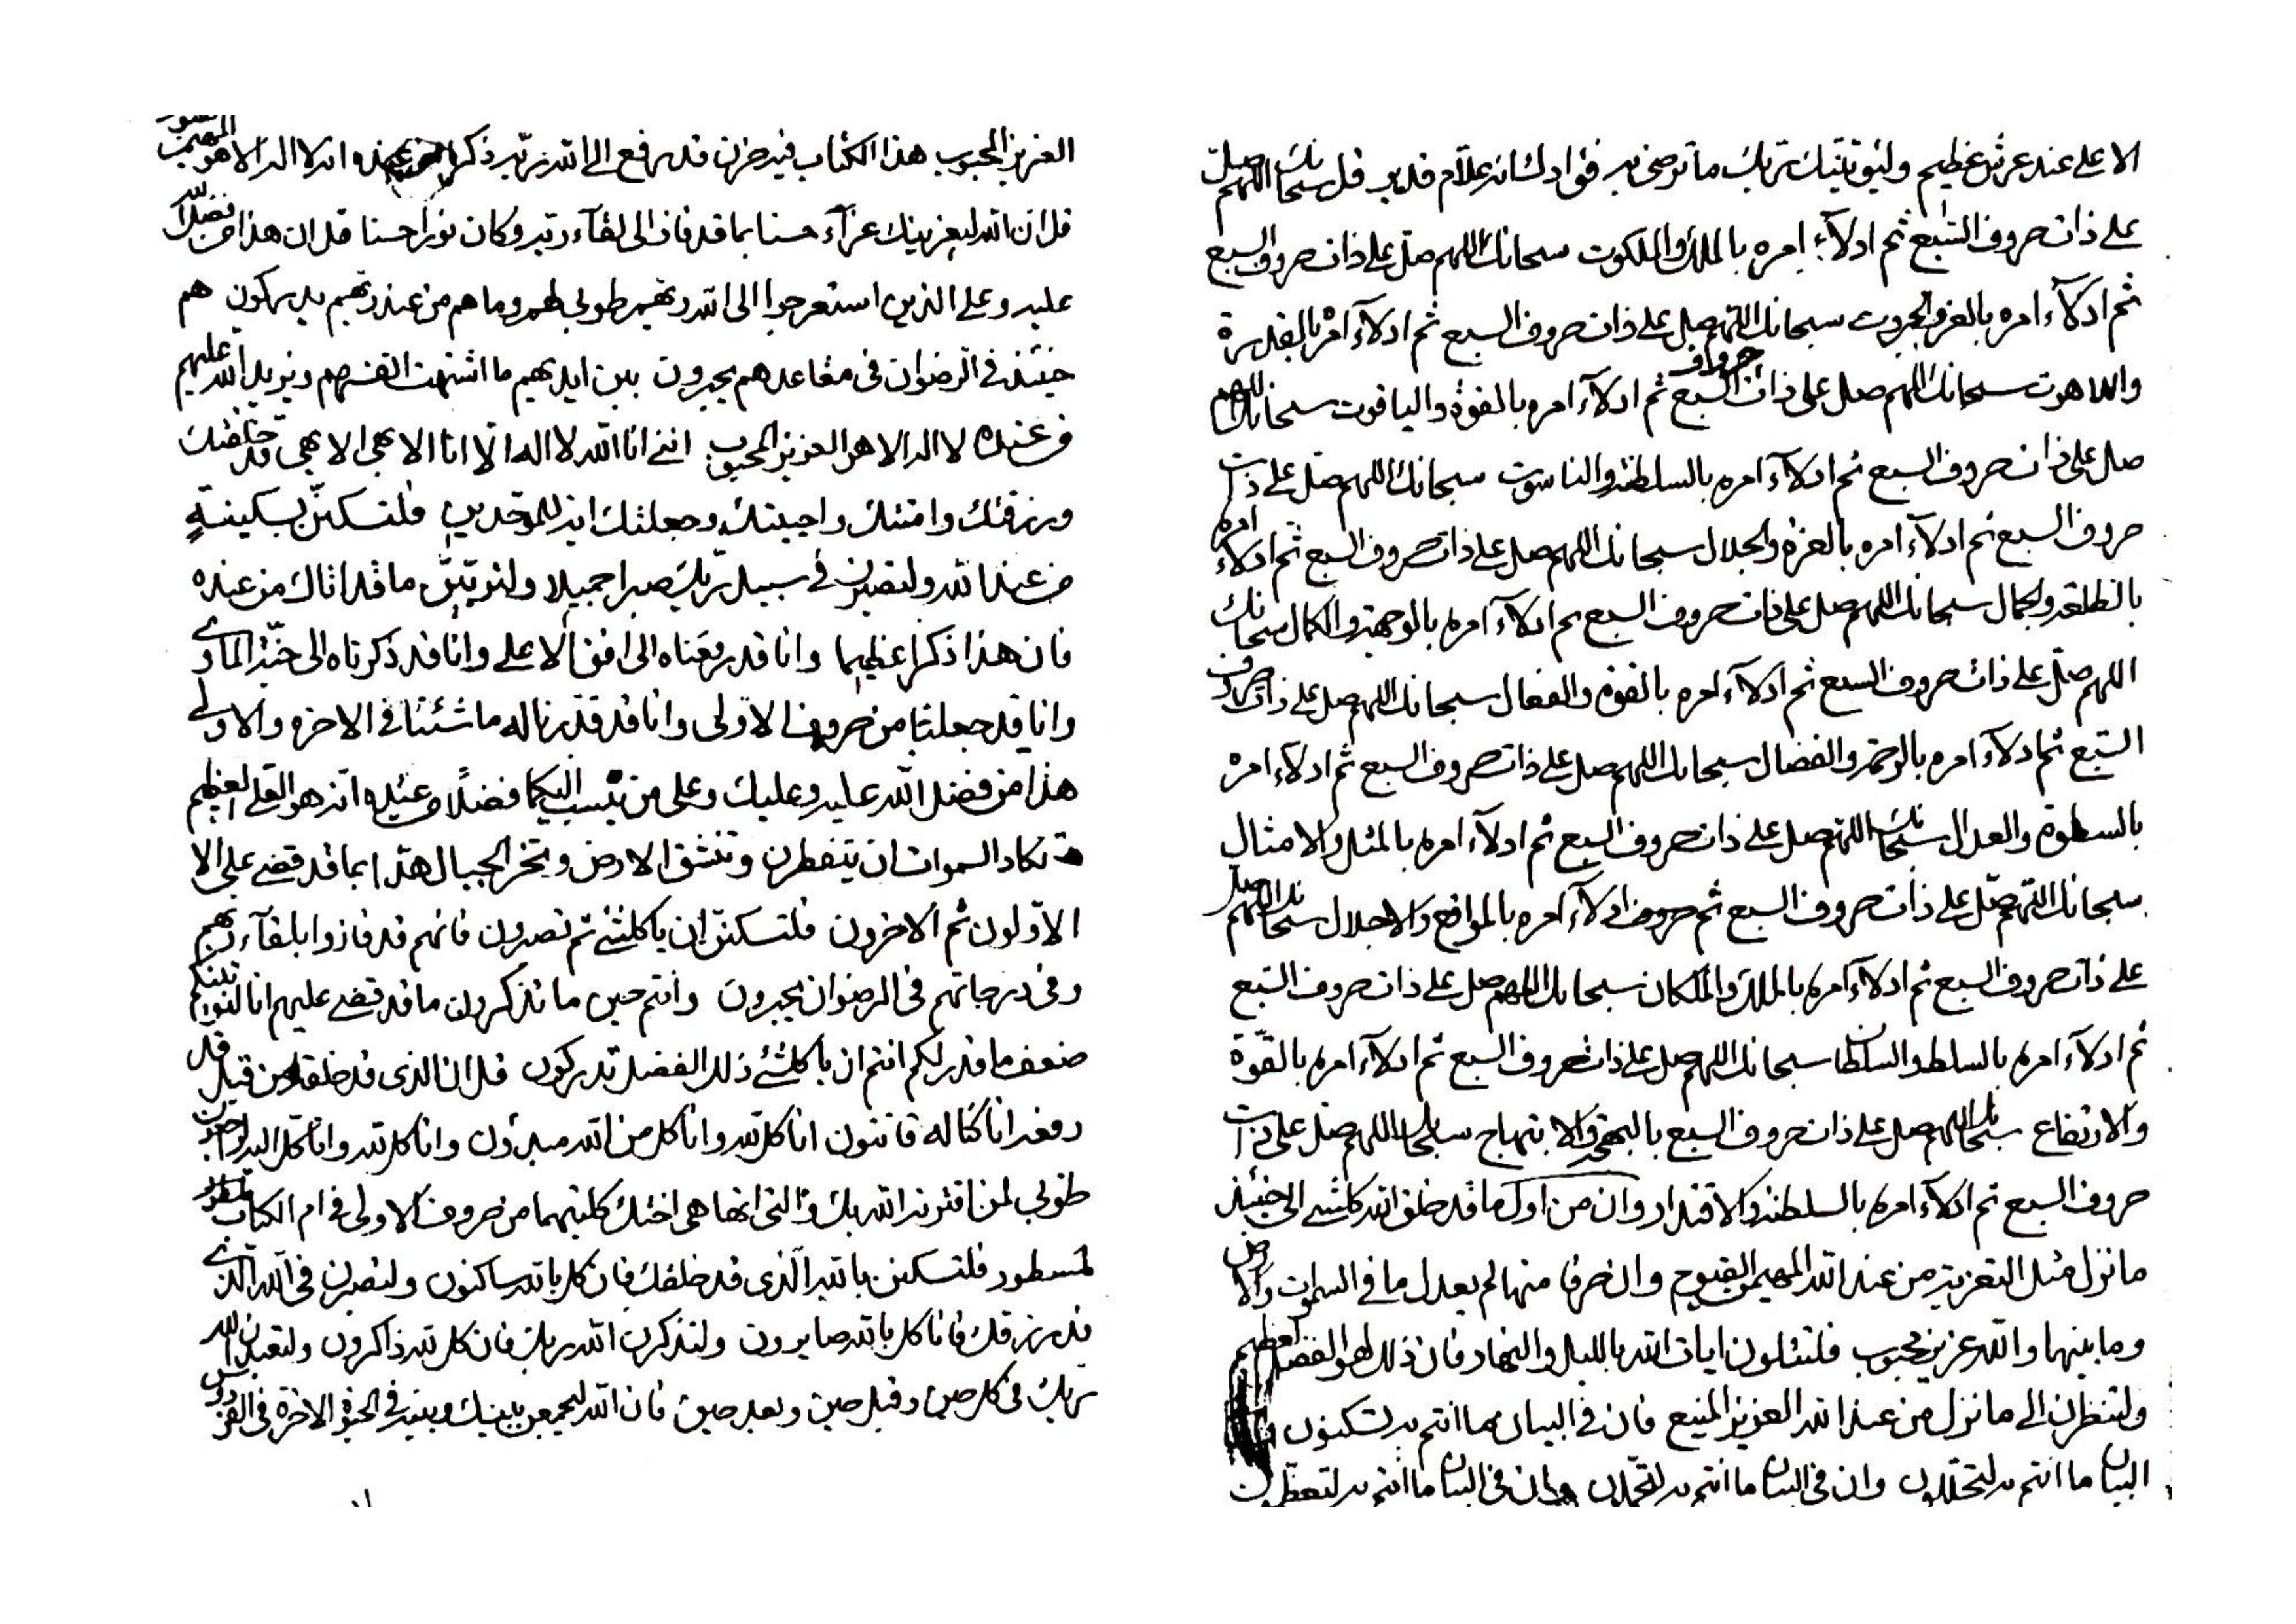 الاعلى عند عرش عظيم وليؤتينك ربك ما ترضى به فؤادك انه علام قدير قل سبحانك اللهم صل
على ذات حروف السبع ثم ادلاء امره بالملك والملكوت سبحانك اللهم صل على ذات حروف السبع
ثم ادلاء امره بالعز والجبروت سبحانك اللهم صل على ذات حروف السبع ثم ادلاء امره بالقدرة
واللاهوت سبحانك اللهم صل على ذات حروف السبع ثم ادلاء امره بالقوة والياقوت سبحانك اللهم
صل على ذات حروف السبع ثم ادلاء امره بالسلطنة والناسوت سبحانك اللهم صل على ذات
حروف السبع ثم ادلاء امره بالعزة والجلال سبحانك اللهم صل على ذات حروف السبع ثم ادلاء امره
بالطلعة والجمال سبحانك اللهم صل على ذات حروف السبع ثم ادلاء امره بالوجهة والكمال سبحانك
اللهم صل على ذات حروف السبع ثم ادلاء امره بالقوة والفعال سبحانك اللهم صل على ذات حروف
السبع ثم ادلاء امره بالرحمة والفضال سبحانك اللهم صل على ذات حروف السبع ثم ادلاء امره
بالسطوة والعدال سبحانك اللهم صل على ذات حروف السبع ثم ادلاء امره بالمثل والامثال
سبحانك اللهم صل على ذات حروف السبع ثم حروف ادلاء امره بالمواقع والاجلال سبحانك اللهم صل
على ذات حروف السبع ثم ادلاء امره بالملك والملكان سبحانك اللهم صل على ذات حروف السبع
ثم ادلاء امره بالسلط والسلطان سبحانك اللهم صل على ذات حروف السبع ثم ادلاء امره بالقوة
والارتفاع سبحانك اللهم صل على ذات حروف السبع بالبهجة والابتهاج سبحانك اللهم صل على ذات
حروف السبع ثم ادلاء امره بالسلطنة والاقتدار وان من اول ما قد خلق الله كلشئ الى حينئذ
ما نزل مثل التعزية من عند الله المهيمن القيوم وان حرفا منها لم يعدل ما في السموات والارض
وما بينهما والله عزيز محبوب فلتتلون ايات الله بالليل والنهار فان ذلك لهو الفضل العظيم
ولتنظرن الى ما نزل من عند الله العزيز المنيع فان في البيان ما انتم به تسكنون
البيان ما انتم به وان في البيان ما انتم به وان في البيان ما انتم به
العزيز المحبوب هذا الكتاب فيه حزن قد رفع الى الله ربه ذكرا من عنده انه لا اله الا هو المهيمن
قل ان الله ليعزينك عزاء حسنا بما قد فاز الى لقاء ربه وكان نورا حسنا قل ان هذا من فضل الله
عليه وعلى الذين استعرجوا الى الله ربهم طوبى لهم وما هم من عند ربهم يدركون هم
حينئذ في الرضوان في مقاعدهم يحبرون بين ايديهم ما اشتهت انفسهم ويزيد الله عليهم
من عنده لا اله الا هو العزيز المحبوب انني انا الله لا اله الا انا الابهى الابهى قد خلقتك
ورزقتك وامتك واحييتك وجعلتك اية للموحدين فلتسكنن بسكينة
من عند الله ولتصبرن في سبيل ربك صبرا جميلا ولتوتين ما قد اتاك من عنده
فان هذا ذكرا عظيما وانا قد رفعناه الى افق الاعلى وانا قد ذكرناه الى جنة الماوى
وانا قد جعلناه من حروف الاولى وانا قد قدرنا له ما شئنا في الاخرة والاولى
هذا من فضل الله عليه وعليك وعلى من ينسب اليكما فضلا من عنده انه هو العلي العظيم
تكاد السموات ان يتفطرن وتنشق الارض وتخر الجبال هدا بما قد قضى على الا
الاولون ثم الاخرون فلتسكنن ان يا كلشئ ثم تصبرون فانهم قد فازوا بلقاء ربهم
وفي درجاتهم في الرضوان يحبرون وانتم حين ما تذكرون ما قد قضى عليهم انا لنوتينكم
ضعف ما قدر لكم انتم ان يا كلشئ ذلك الفضل تدركون قل ان الذي قد خلقه من قبل قد
رفعه انا كنا له قانتون انا كل لله وانا كل من الله مبدؤن وانا كل لله وانا كل اليه راجعون
طوبى لمن اقترنه الله بك والتي انها هي اختك كلتيهما من حروف الاولى في ام الكتاب
لمسطور فلتسكنن بالله الذي قد خلقك فان كل بالله ساكنون ولتصبرن في الله الذي
قد رزقك فانا كل بالله صابرون ولتذكرن الله ربك فان كل لله ذاكرون ولتعبدن الله
ربك في كل حين وقبل حين وبعد حين فان الله ليجمعن بينك وبينه في الحيوة الاخرة في الفردوس